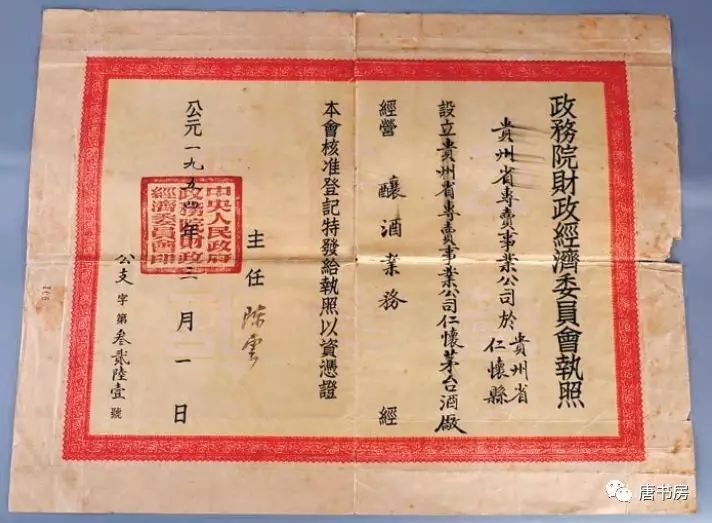 政務院財政經濟委員會執照
貴州省專賣事業公司於
貴州省
仁懷縣
設立貴州省專賣事業公司仁懷茅台酒廠
經營 釀酒業務 經
本會核准登記特發給執照以資憑證
主任 陈雲
公元一九五 年 二月一日
中央人民政府
政務院財政
經濟委員會印
公支字第叁貳陸壹號
唐书房